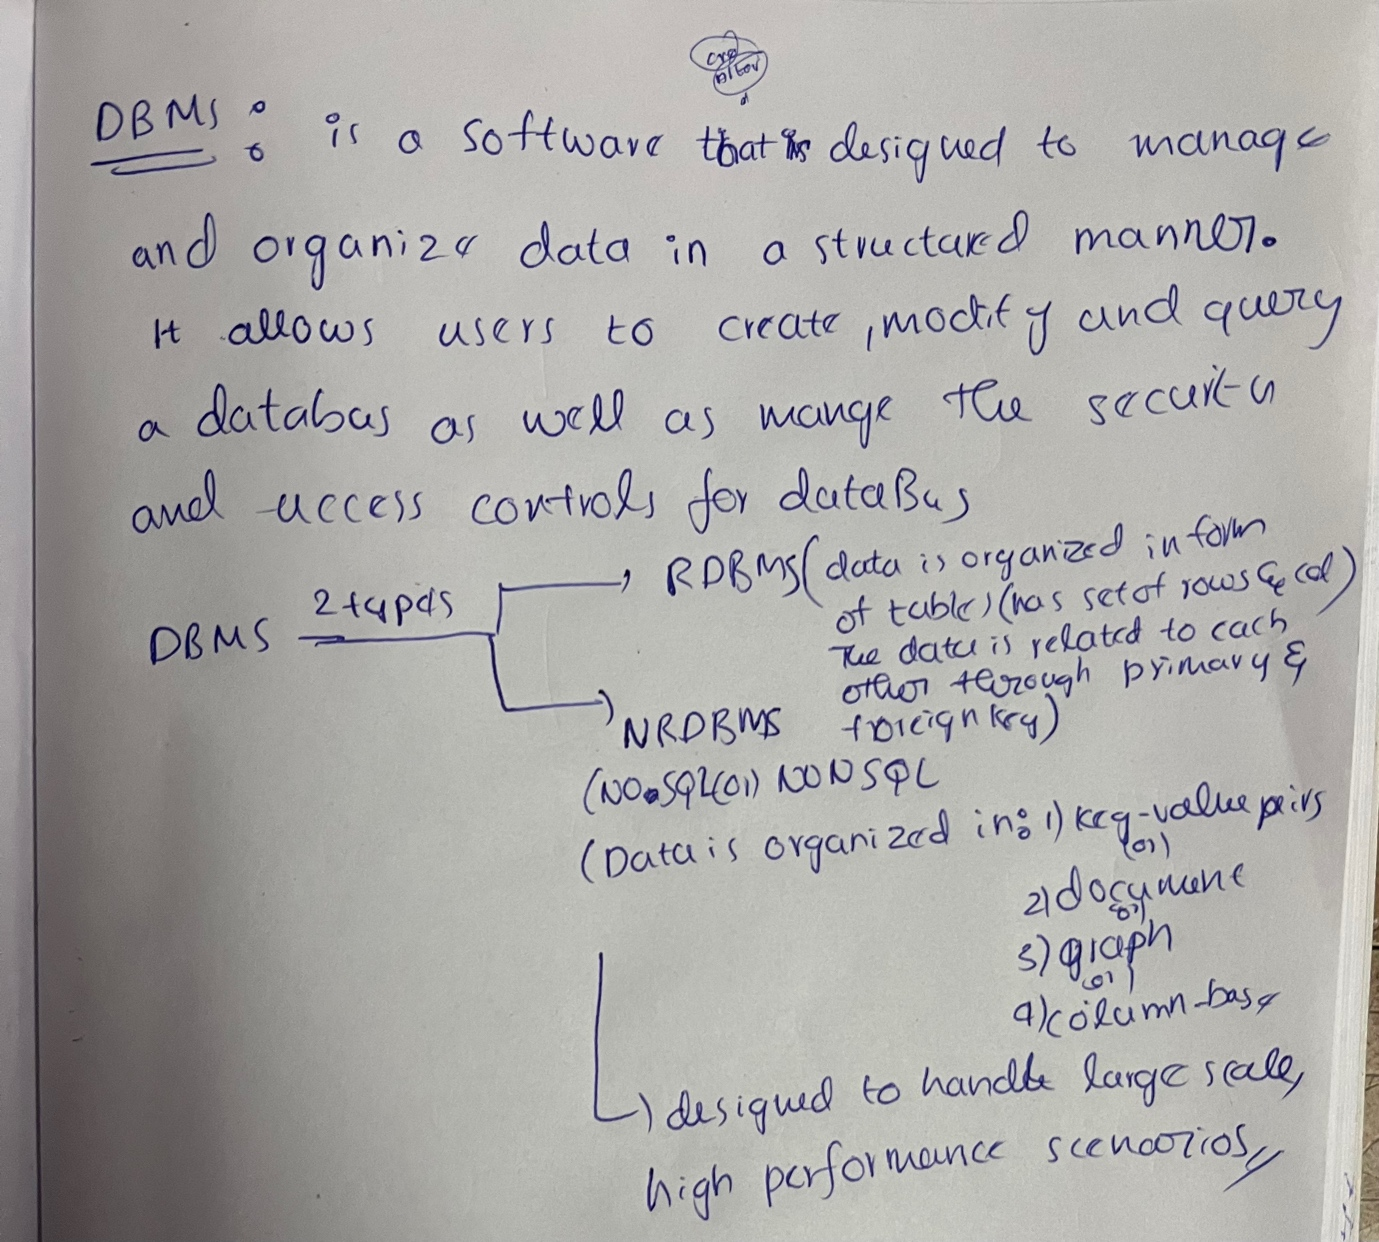 DBMS : is a software that is designed to manage
and organize data in a structured manner.
It allows users to create, modify and query
a databas as well as mange the security
and access controls for dataBas
DBMS 2 types
RDBMS (data is organized in form
of table) (has set of rows & col)
The data is related to each
other through primary &
foreign key)
NRDBMS
(NO.SQL(or) NONSQL
(Data is organized in: 1) Key-value pairs
(or)
2) document
(or)
3) graph
(or)
4) column-base
designed to handle large scale,
high performance scenarios